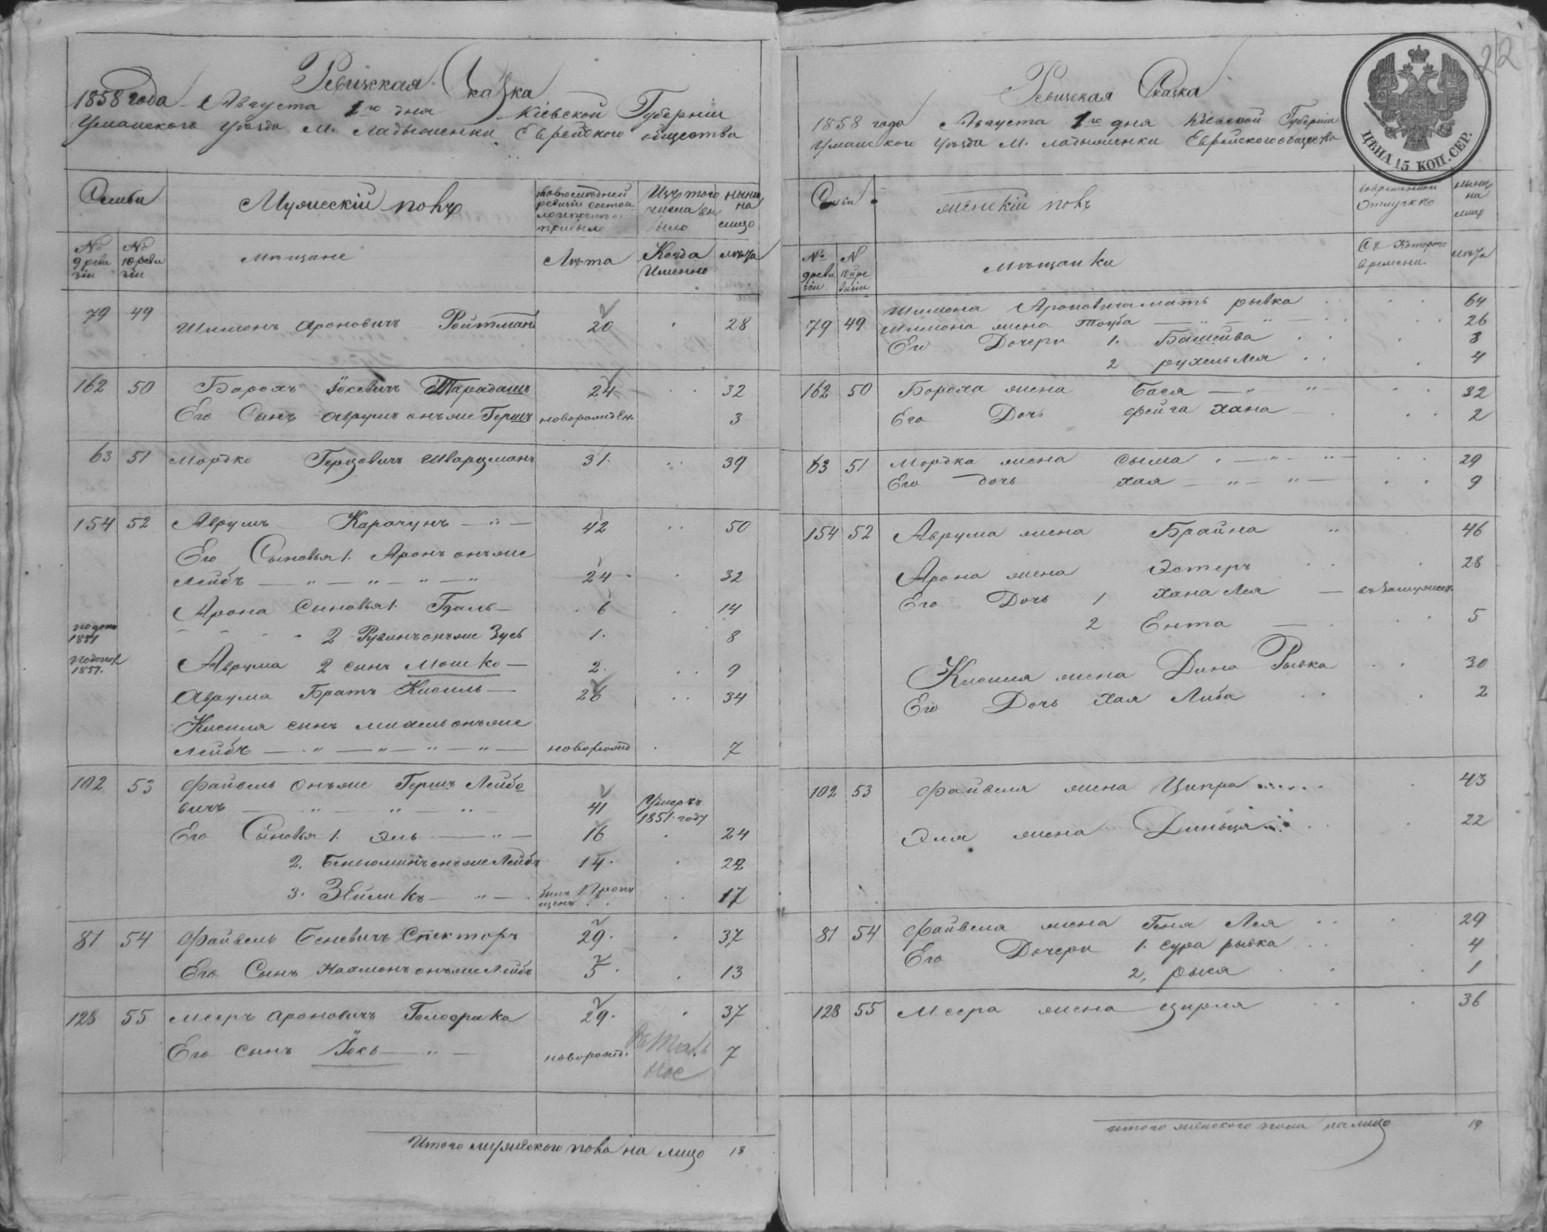 Ревизская Сказка
1858 года Августа 1го дня Киевской Губернии
Уманского Уезда М. Ладыженки Еврейского общества
Семьи
Мужеский полъ
нынѣ на лицо
№ 9 реви зіи
№ 10 реви зіи
мѣщане
Лѣта
Когда Именно
лѣта
79 49 Шимонъ Ароновичъ Ройтманъ 20 28
162 50 Борохъ Іосевичъ Тарадашъ 24 32
Его Сынъ Аврумъ онъже Гершъ новорожден. 3
63 51 Мордко Герцовичъ Шварцманъ 31 39
154 52 Аврумъ Карачунъ 42 50
Его Сыновья 1. Аронъ онъже
Лейбъ 24 32
Арона Сыновья 1. 6 14
2 Рувинъ онъже Зусь 1. 8
Аврума 2 сынъ Мошко 2. 9
Аврума Братъ Кисиль 26 34
Кисиля сынъ Михель онъже
Лейбъ новорожд 7
102 53 Файвель онъже Гершъ Лейбо
вичъ 41 Умеръ 1851 году
Его Сыновья 1. Эль 16 24
2. Беньоминъ онъже Лейбъ 14. 22
3. Зейликъ 17
81 54 Файвель Беневичъ Спекторъ 29. 37
Его Сынъ Нахманъ онъже Лейбъ 5. 13
128 55 Мееръ Ароновичъ Голодрика 29. 37
Его сынъ Іось новорожд. 7
Итого мужеского пола на лицо 18
22
Ревизская Сказка
1858 года Августа 1го дня Киевской Губернии
Уманского Уезда М. Ладыженки Еврейского общества
ЦѢНА 15 КОП. СЕР.
Семьи
женскій полъ
во временной отлучкѣ
нынѣ на лицо
№ 9 реви зіи
№ 10 ре визіи
мѣщанки
Съ Котораго времени
лѣта
79 49 Шимона Ароновича мать рывка 64
Шимона жена Тоуба 26
Его Дочери 1. Башейва 8
2 рухель Лея 4
162 50 Бороха жена Бася 32
Его Дочь Фейга Хана 2
63 51 Мордка жена Сыма 29
Его дочь Хая 9
154 52 Аврума жена Брайна 46
Арона жена Эстеръ 28
Его Дочь 1 Хана Лея
2 Ента 5
Кисиля жена Дина Рывка 30
Его Дочь Хая Либа 2
102 53 Файвеля жена Ципра 43
Эля жена 22
81 54 Файвеля жена Геня Лея 29
Его Дочери 1. Сура рывка 4
2, рыся 1
128 55 Меера жена Цирля 36
итого женского пола на лицо 19